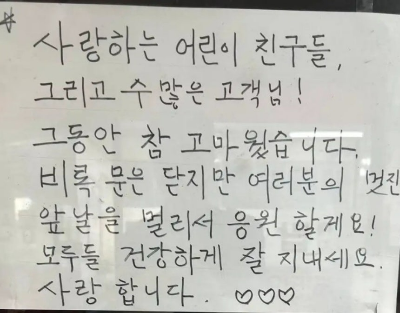 * 사랑하는 어린이 친구들,
그리고 수 많은 고객님!
그동안 참 고마웠습니다.
비록 문은 닫지만 여러분의 멋진
앞날을 멀리서 응원 할게요!
모두들 건강하게 잘 지내세요.
사랑 합니다. ♡♡♡